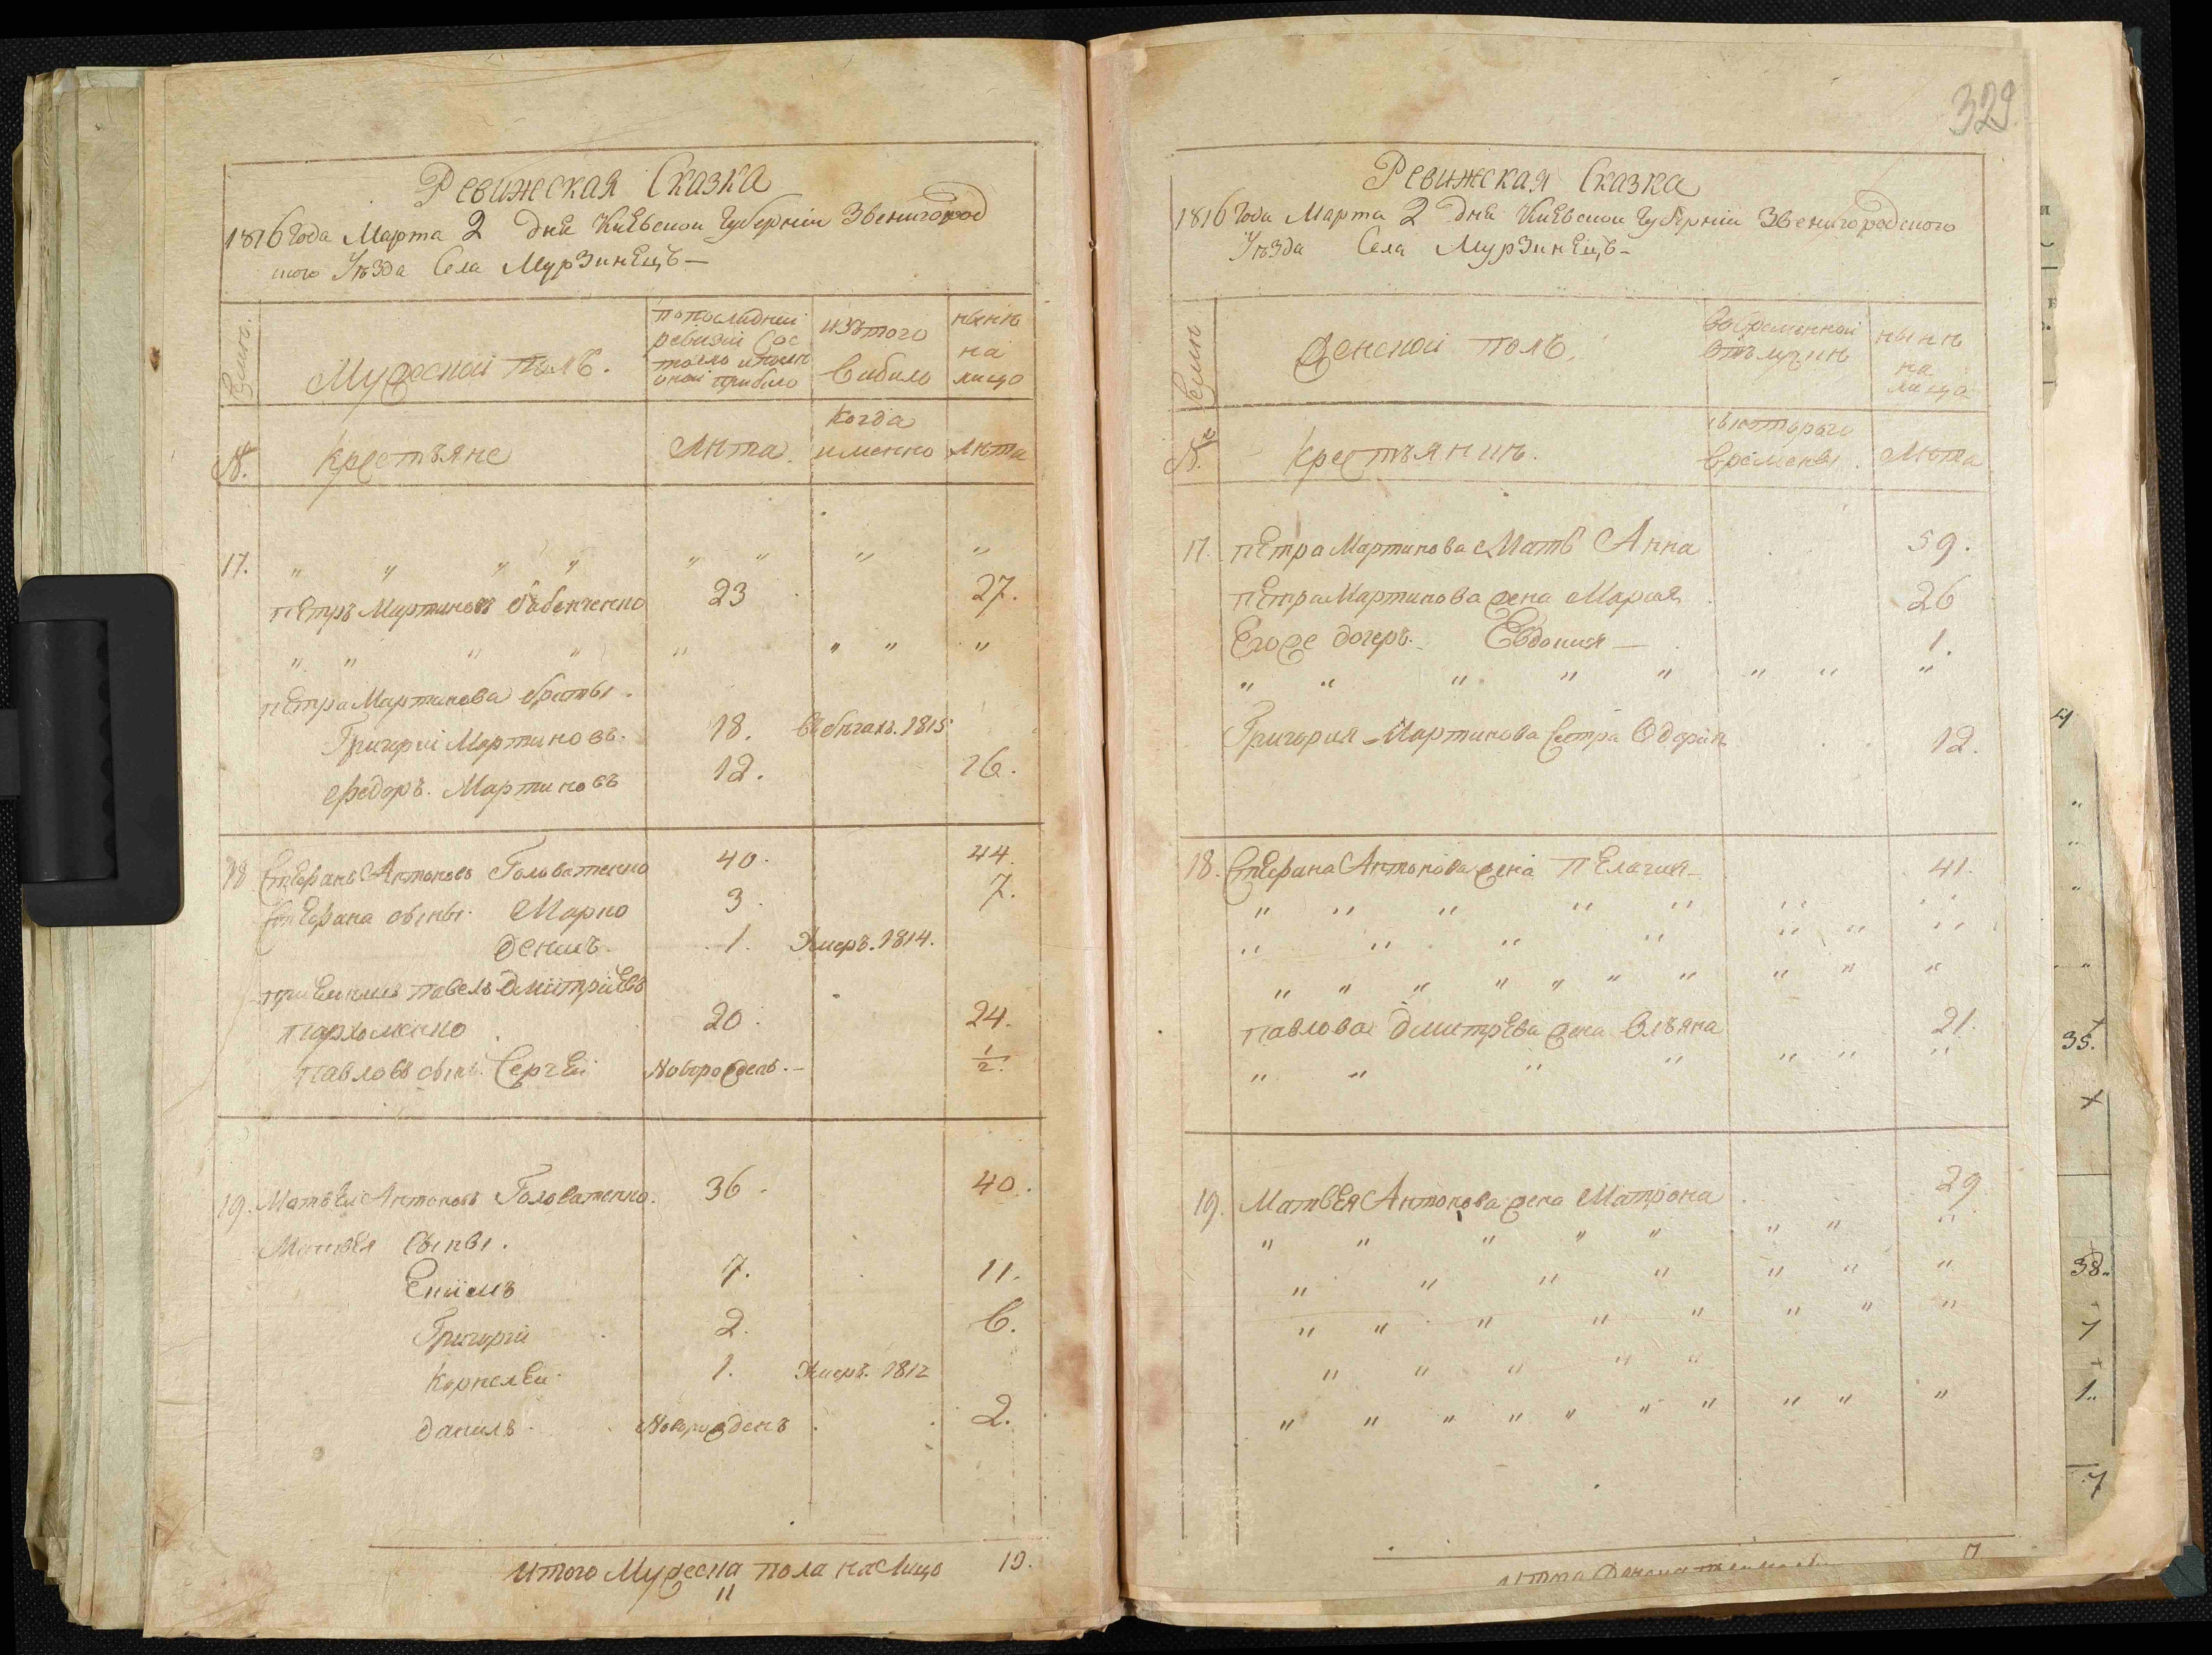 Ревижская Сказка
1816 Года Марта 2 дня Киевской Губерніи Звенигород
ского Уѣзда Села Мурзинецъ —
Мужеской полъ.
по последней
ревизіи Сос
тояло и после
оной прибило
изъ того
выбило
ныне
на
лицо
№. Крестьяне
Лѣта
когда
именно
Лѣта
17. " " " " " " " "
Петръ Мартиновъ 23 27.
" " " " " " " "
Петра Мартинова братьі.
Григорій Мартиновъ. 18. 1815
Федоръ. Мартиновъ 12. 16.
18 Стефанъ Антоновъ Головатенко 40. 44.
Стефана сынві. Марко 3. 7.
Денисъ. 1. Умеръ. 1814.
Павелъ Дмитріевъ
Пархоменко 20. 24.
Павловъ сынъ. Сергей Новорожденъ. — 1/2.
19. Матвей Антоновъ Головатенко. 36. 40.
Матвея Сынві.
Екимъ 7. 11.
Григорій 2. 6.
Корнелей 1. Умеръ. 1812
Данилъ. Новорожденъ 2.
Итого Мужеска пола на Лицо 10.
11
329
Ревижская Сказка
1816 Года Марта 2 дня Киевской Губерніи Звенигородского
Уѣзда Села Мурзинецъ —
Семьи
Женской полъ.
Во временной
отлучкѣ
ныне
на
лицо
№. Крестьянинъ.
с которого
времены.
Лѣта
17. Петра Мартинова Мать Анна 59.
Петра Мартинова жена Мария 26
Егоже дочерь. Евдокия — 1.
" " " " " " " "
Григория Мартинова Сестра 12.
18. Стефана Антонова жена Пелагия — 41.
" " " " " " " "
" " " " " " "
" " " " " " " " " "
Павлова Дмитрева жена Ульяна 21.
" " " " " " "
19. Матвея Антонова жена Матрона 29
" " " " " " " "
" " " " " " "
" " " " " " " "
" " " " "
" " " " " " " " " "
35.
38.
7
1.